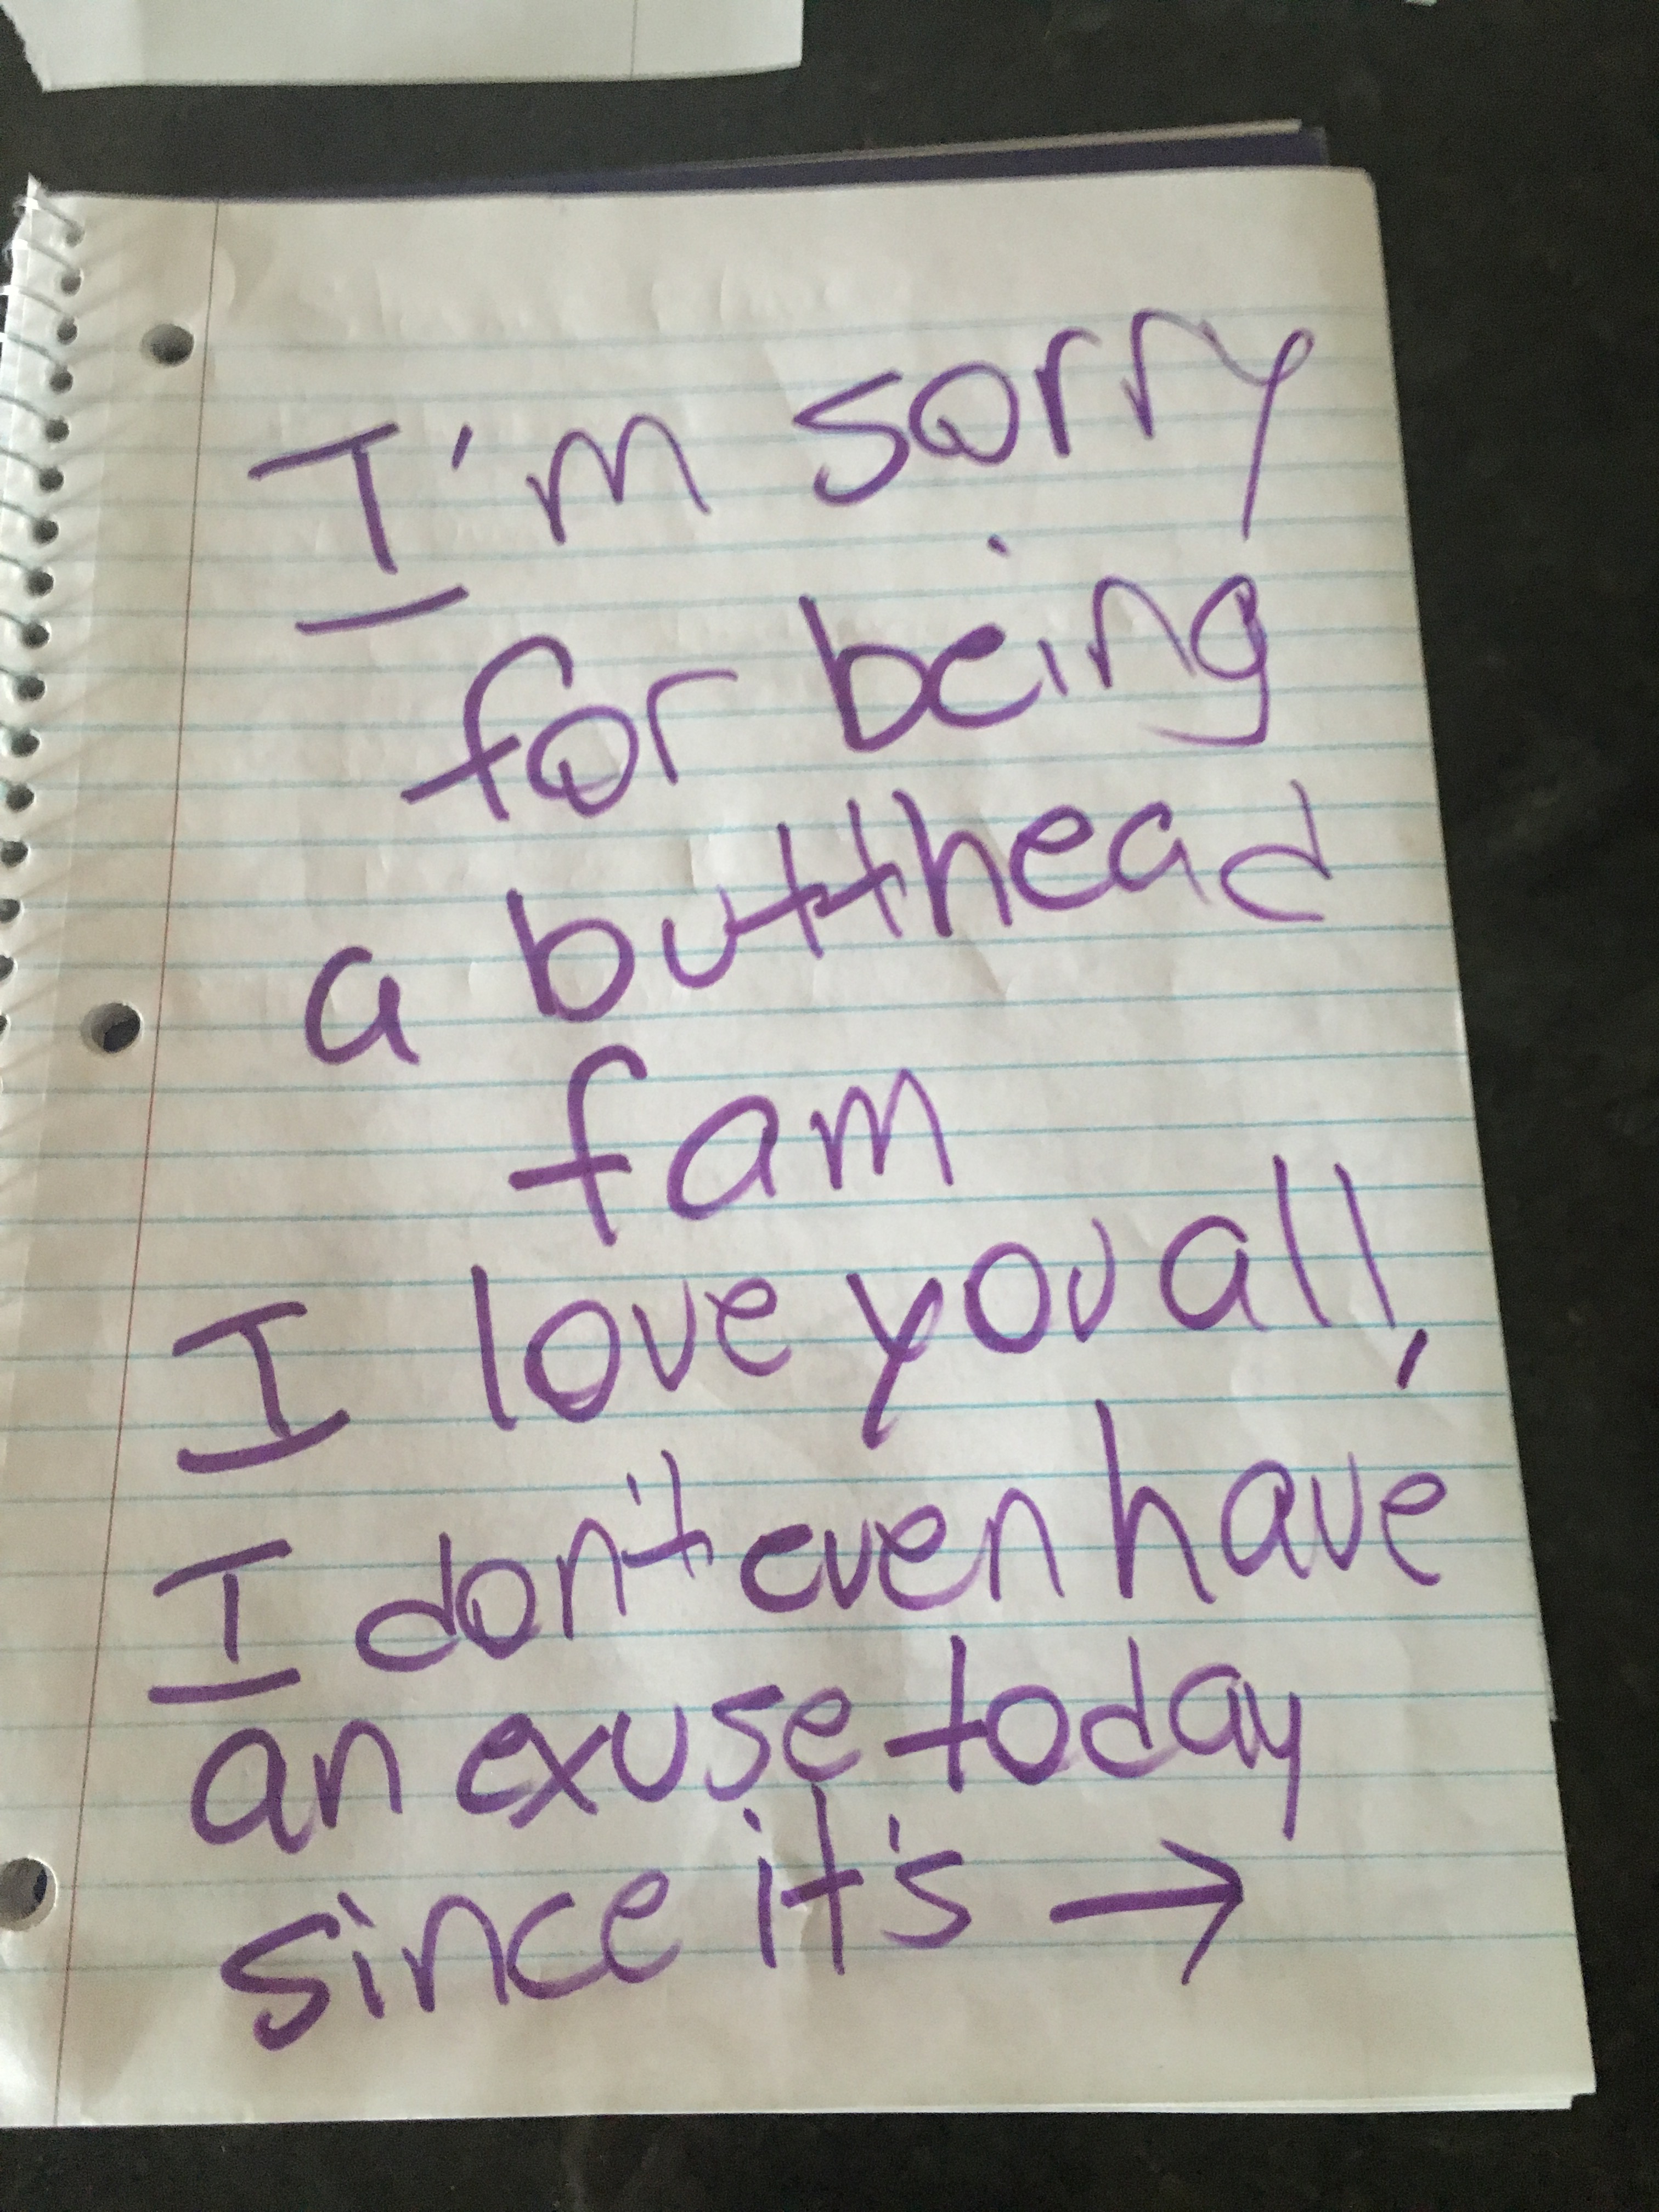 I'm sorry
for being
a butthead
fam
I love you all,
I don't even have
an exuse today
since it's →